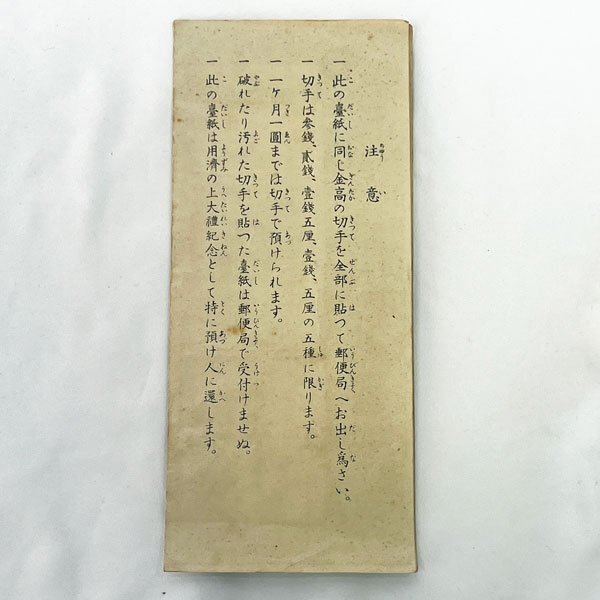 注意
一 此の臺紙に同じ金高の切手を全部に貼つて郵便局へお出し爲さい。
一 切手は參錢、貳錢、壹錢五厘、壹錢、五厘の五種に限ります。
一 一ヶ月一圓までは切手で預けられます。
一 破れたり汚れた切手を貼つた臺紙は郵便局で受付けませぬ。
一 此の臺紙は用濟の上大禮紀念として特に預け人に還します。